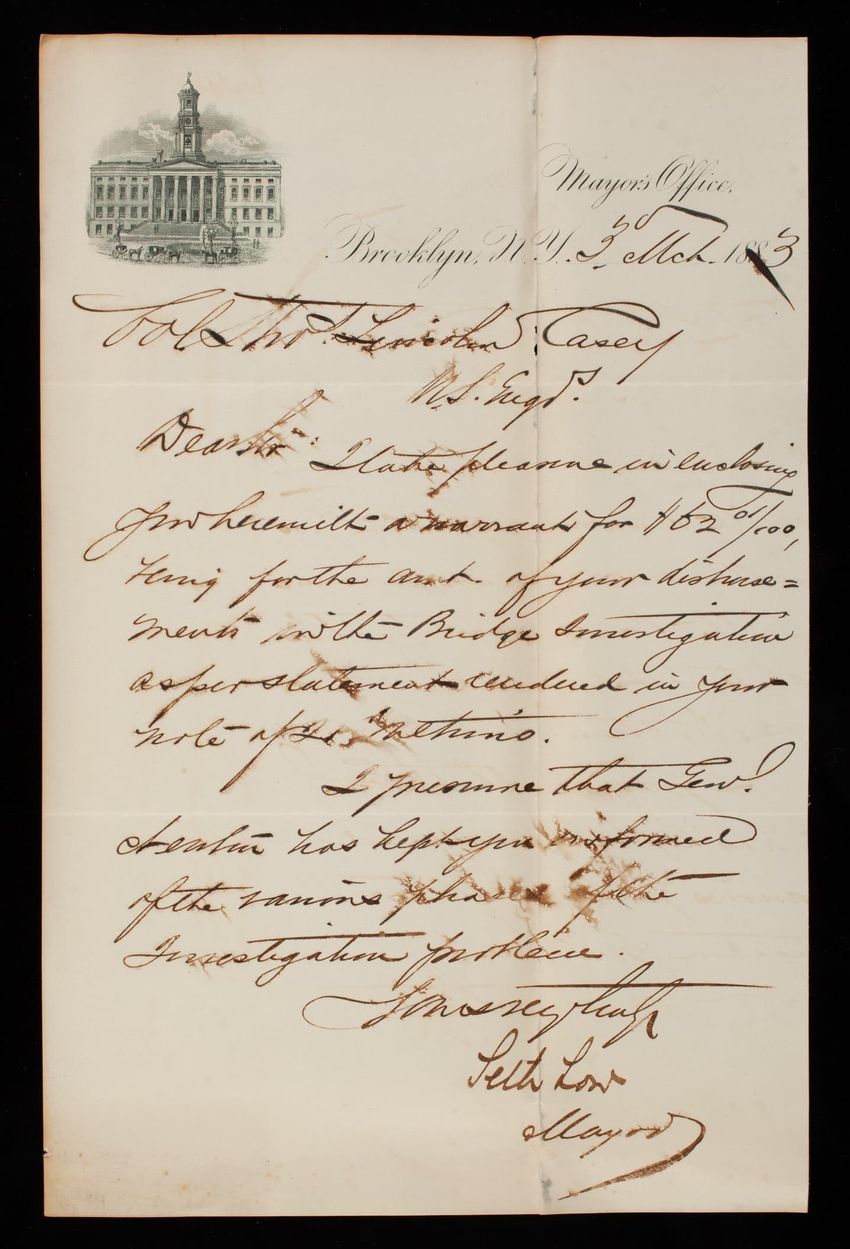 Mayor's Office,
Brooklyn, N.Y. 3d Mch. 1883
Col Thos. Lincoln Casey
U.S. Engrs.
Dear Sir: I take pleasure in enclosing
you herewith a warrant for $62 01/100,
being for the amt. of your disburse=
ments in the Bridge Investigation
as per statement rendered in your
note of ultimo.
I presume that Genl.
Newton has kept you informed
of the various phases of the
Investigation problem.
Yours very truly
Seth Low
Mayor